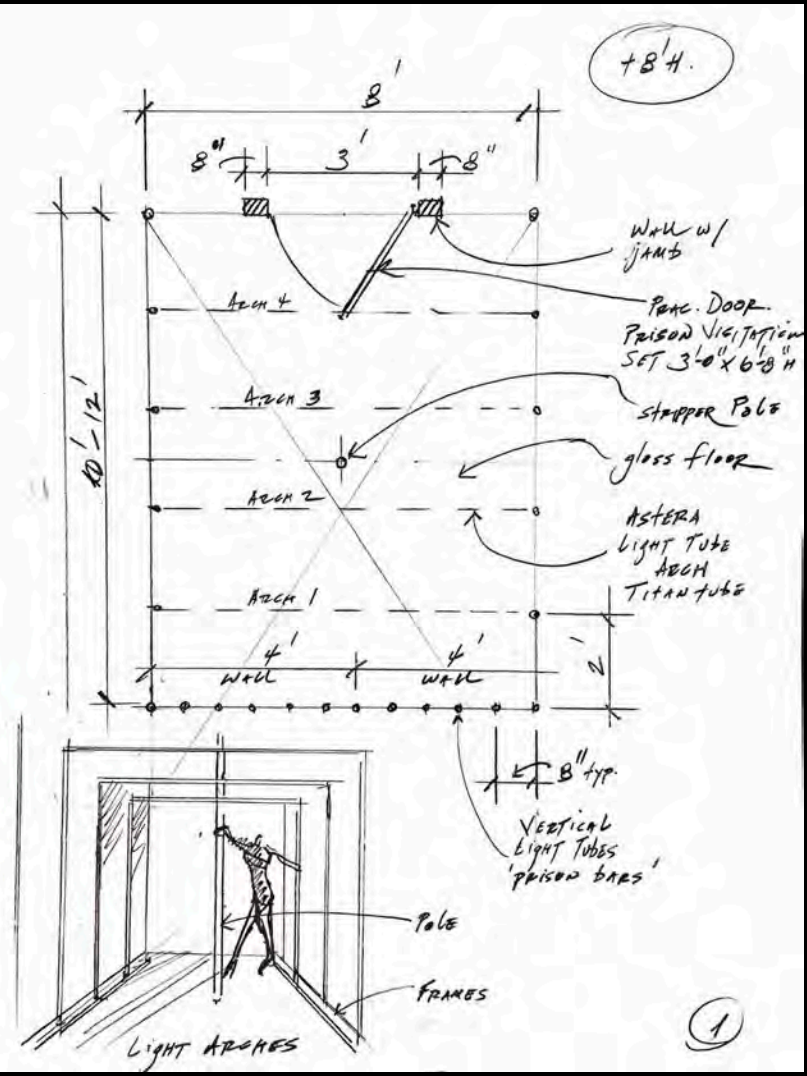 +8' H.
8'
8"
3'
8"
WALL W/
JAMB
ARCH 4
PRAC. DOOR.
PRISON VISITATION
SET 3'-0" X 6'-8" H
ARCH 3
STRIPPER POLE
gloss floor
10'-12'
ARCH 2
ASTERA
LIGHT TUBE
ARCH
TITAN TUBE
ARCH 1
4'
WALL
4'
WALL
2'
8" typ.
VERTICAL
LIGHT TUBES
'PRISON BARS'
POLE
FRAMES
LIGHT ARCHES
1